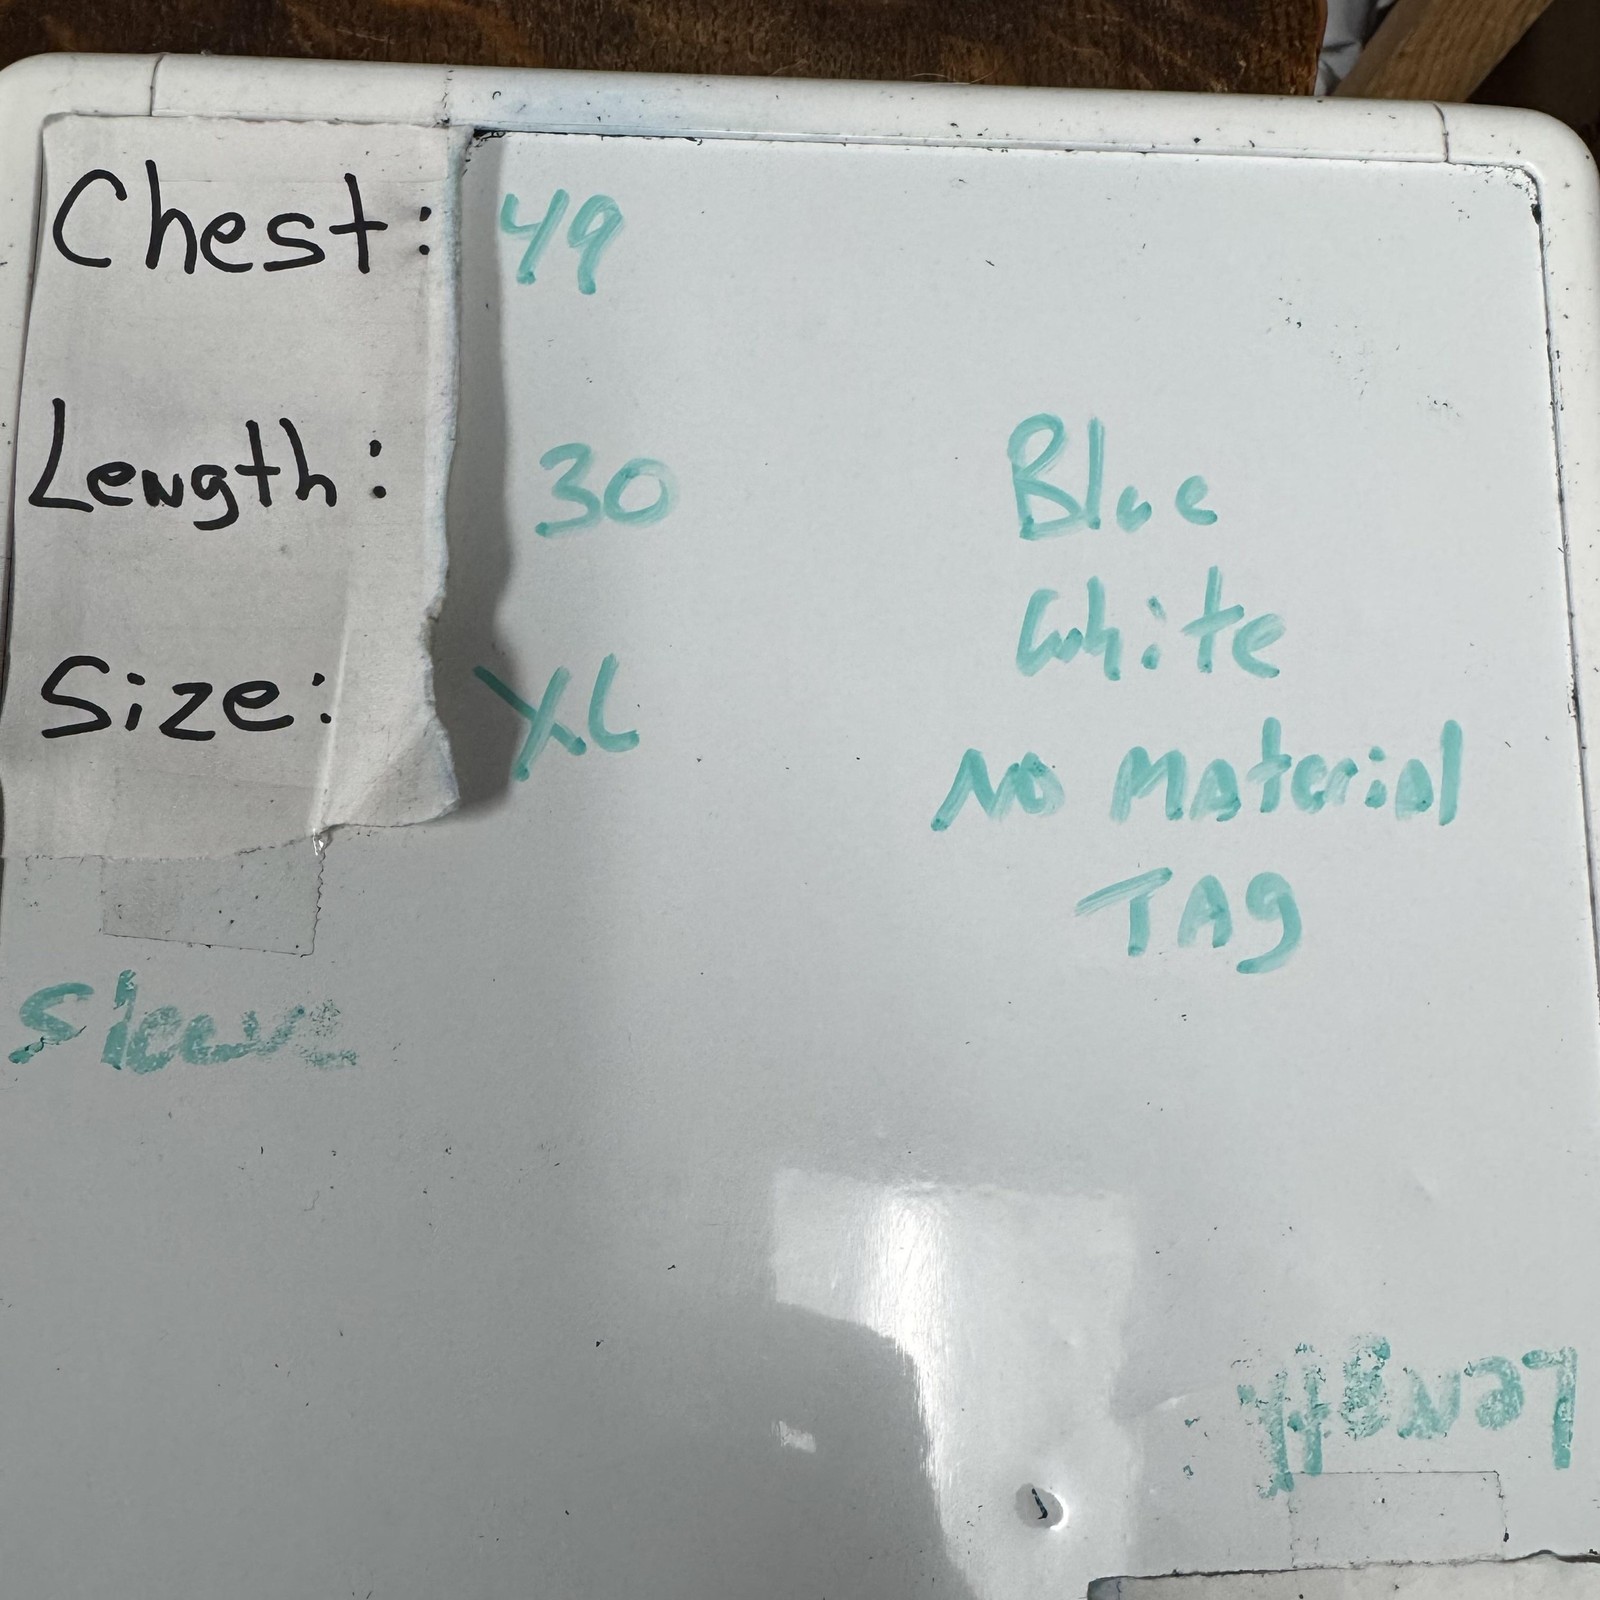 Chest: 49
Length: 30
Size: XL
Blue
White
No Material
TAg
Sleeve
Length